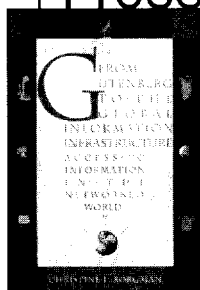 FROM
GUTENBERG
TO THE
GLOBAL
INFORMATION
INFRASTRUCTURE
ACCESS TO
INFORMATION
IN THE
NETWORKED
WORLD
CHRISTINE L. BORGMAN